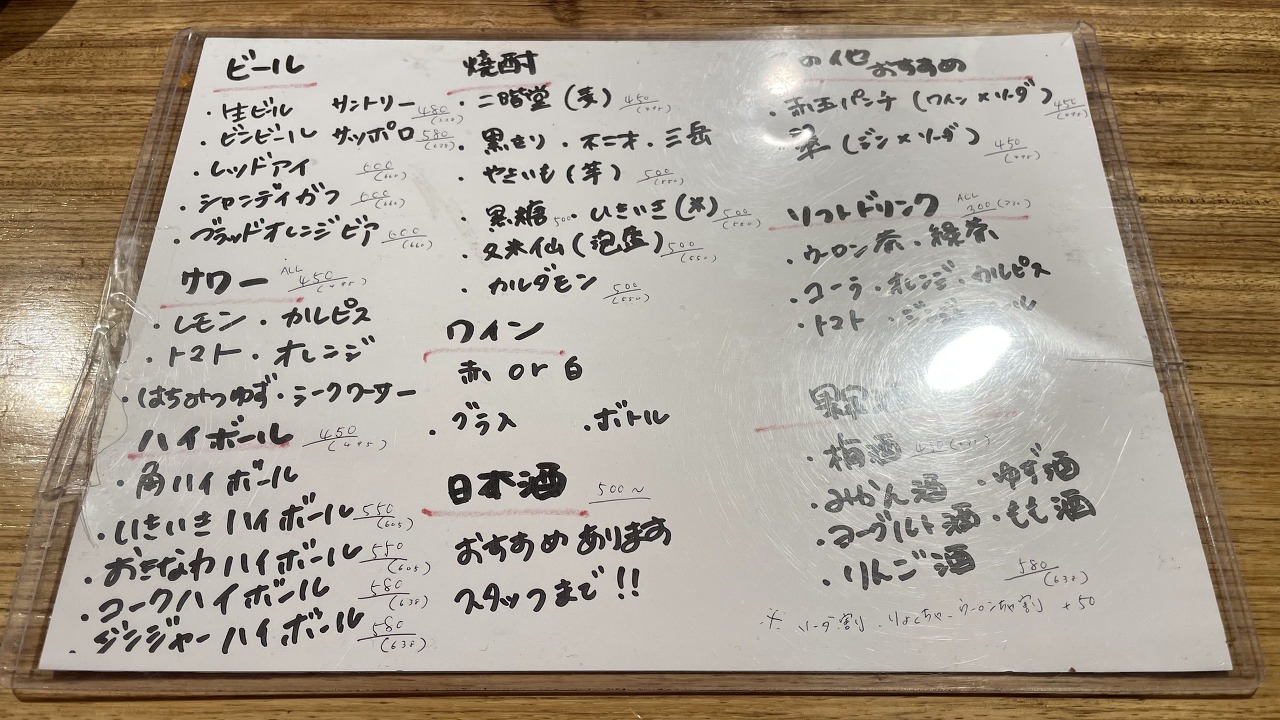 ビール
・生ビール サントリー 480 (528)
・ビンビール サッポロ 580 (638)
・レッドアイ 600 (660)
・シャンディガフ 600 (660)
・ブラッドオレンジビア 600 (660)
サワー ALL 450 (495)
・レモン ・カルピス
・トマト ・オレンジ
・はちみつゆず ・シークワーサー
ハイボール 450 (495)
・角ハイボール
・いきいきハイボール 550 (605)
・おきなわハイボール 550 (605)
・コークハイボール 580 (638)
・ジンジャーハイボール 580 (638)
焼酎
・二階堂(麦) 450 (495)
・黒きり ・不二才 ・三岳
・やきいも(芋) 500 (550)
・黒糖 500 ・いきいき(米) 500 (550)
・久米仙(泡盛) 500 (550)
・カルダモン 500 (550)
ワイン
赤 or 白
・グラス ・ボトル
日本酒 500〜
おすすめあります
スタッフまで!!
の他おすすめ
・赤玉パンチ(ワイン×ソーダ) 450 (495)
翠(ジン×ソーダ) 450 (495)
ソフトドリンク ALL 200 (220)
・ウーロン茶 ・緑茶
・コーラ ・オレンジ ・カルピス
・トマト
果実
・梅酒 450 (495)
・みかん酒 ・ゆず酒
・ヨーグルト酒 ・もも酒
・りんご酒 580 (638)
※ソーダ割、りょくちゃ、ウーロンちゃ割 +50